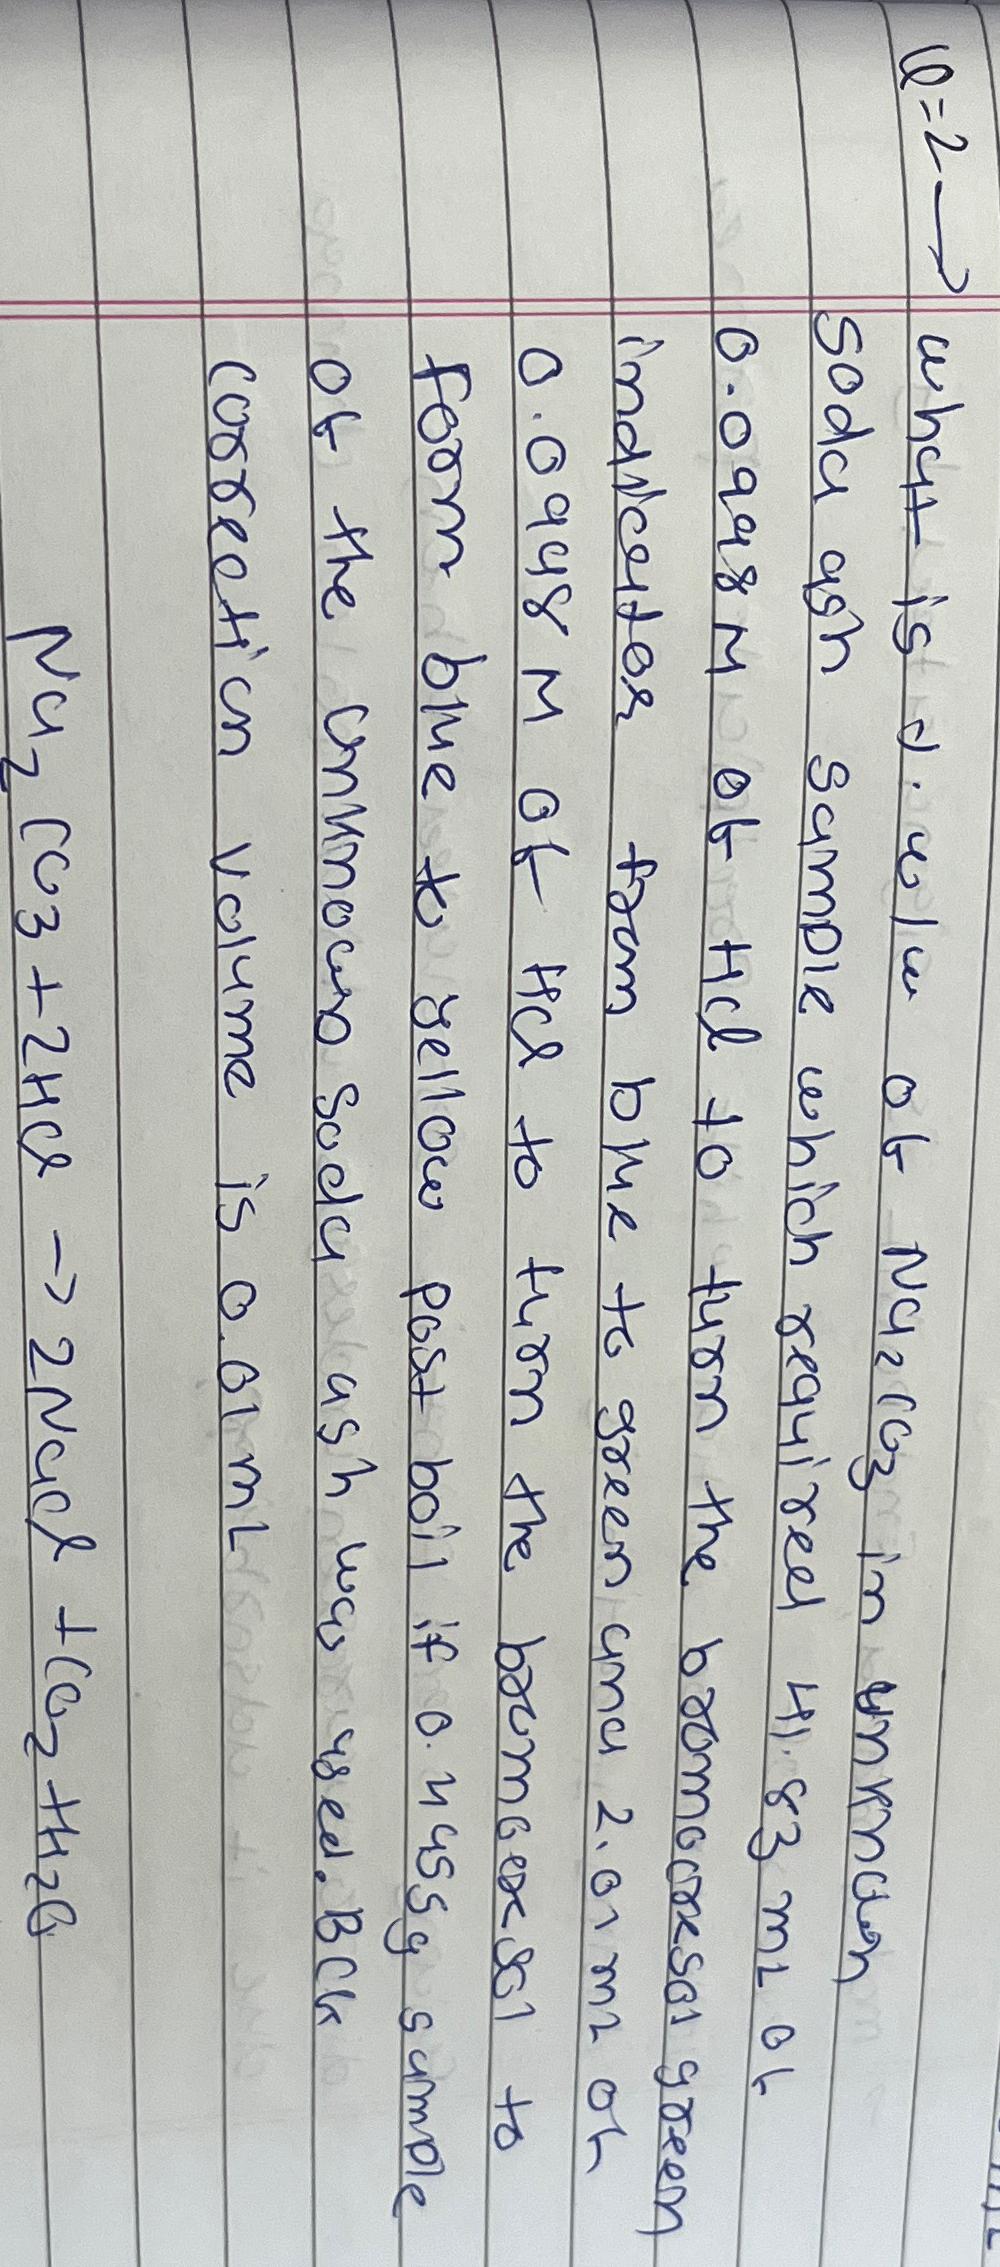 Q=2 → what is v. value of Na2CO3 in unknown
Soda ash sample which required 41.83 mL of
0.0998 M of HCl to turn the bromocresol green
indicator from blue to green and 2.01 mL of
0.0998 M of HCl to turn the bromocresol to
from blue to yellow post boil if 0.4459 sample
of the unknown soda ash was used. Blk
correction volume is 0.01 mL
Na2CO3 + 2HCl → 2NaCl + CO2 + H2O